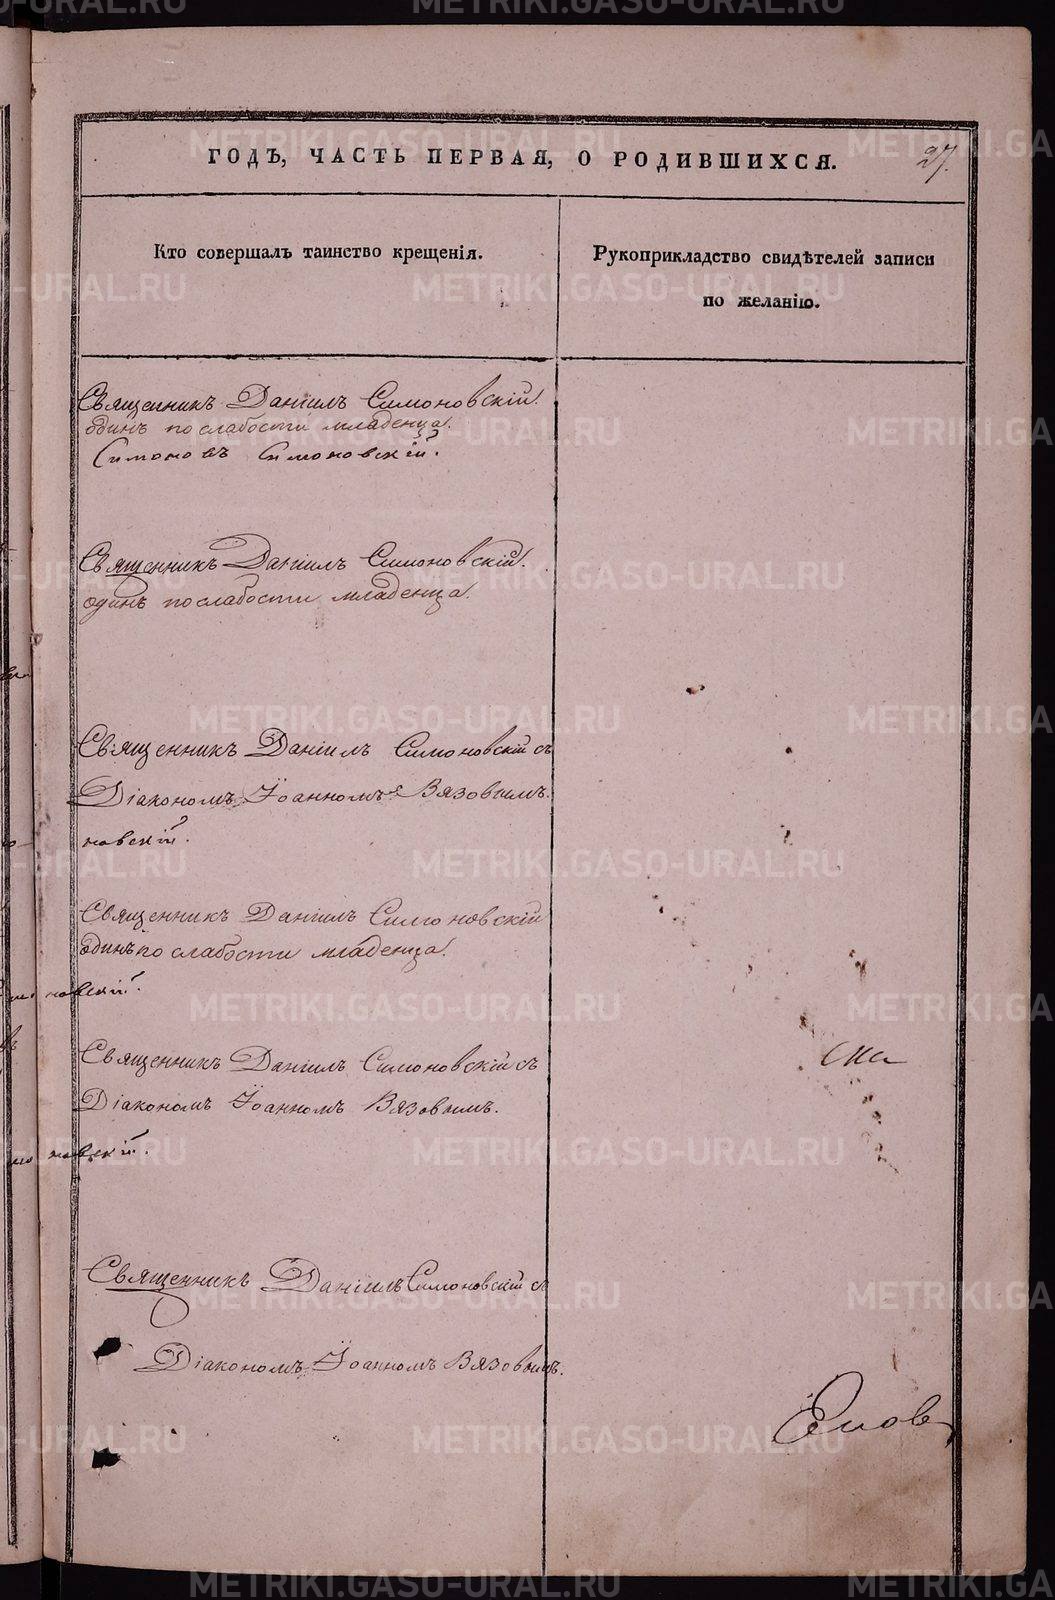 ГОДЪ, ЧАСТЬ ПЕРВАЯ, О РОДИВШИХСЯ.
27.
Кто совершалъ таинство крещенія.
Рукоприкладство свидѣтелей записи
по желанію.
Священникъ Даніилъ Симоновскій.
одинъ по слабости младенца.
Симоновъ Симоновскій.
Священникъ Даніилъ Симоновскій.
одинъ по слабости младенца.
Священникъ Даніилъ Симоновскій съ
Діакономъ Іоанномъ Вязовымъ.
новскій.
Священникъ Даніилъ Симоновскій
одинъ по слабости младенца.
новскій.
Священникъ Даніилъ Симоновскій съ
Діакономъ Іоанномъ Вязовымъ.
новскій.
Священникъ Даніилъ Симоновскій съ
Діакономъ Іоанномъ Вязовымъ.
METRIKI.GASO-URAL.RU